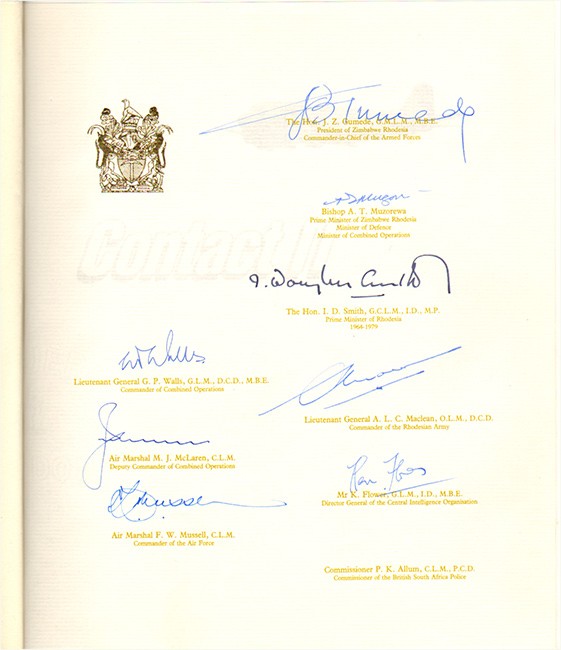 J Z Gumede
The Hon. J. Z. Gumede, G.M.L.M., M.B.E.
President of Zimbabwe Rhodesia
Commander-in-Chief of the Armed Forces
Bishop A. T. Muzorewa
Prime Minister of Zimbabwe Rhodesia
Minister of Defence
Minister of Combined Operations
I. Douglas Smith
The Hon. I. D. Smith, G.C.L.M., I.D., M.P.
Prime Minister of Rhodesia
1964-1979
Walls
Lieutenant General G. P. Walls, G.L.M., D.C.D., M.B.E.
Commander of Combined Operations
Lieutenant General A. L. C. Maclean, O.L.M., D.C.D.
Commander of the Rhodesian Army
Air Marshal M. J. McLaren, C.L.M.
Deputy Commander of Combined Operations
Ken Flower
Mr K. Flower, G.L.M., I.D., M.B.E.
Director General of the Central Intelligence Organisation
Mussell
Air Marshal F. W. Mussell, C.L.M.
Commander of the Air Force
Commissioner P. K. Allum, C.L.M., P.C.D.
Commissioner of the British South Africa Police